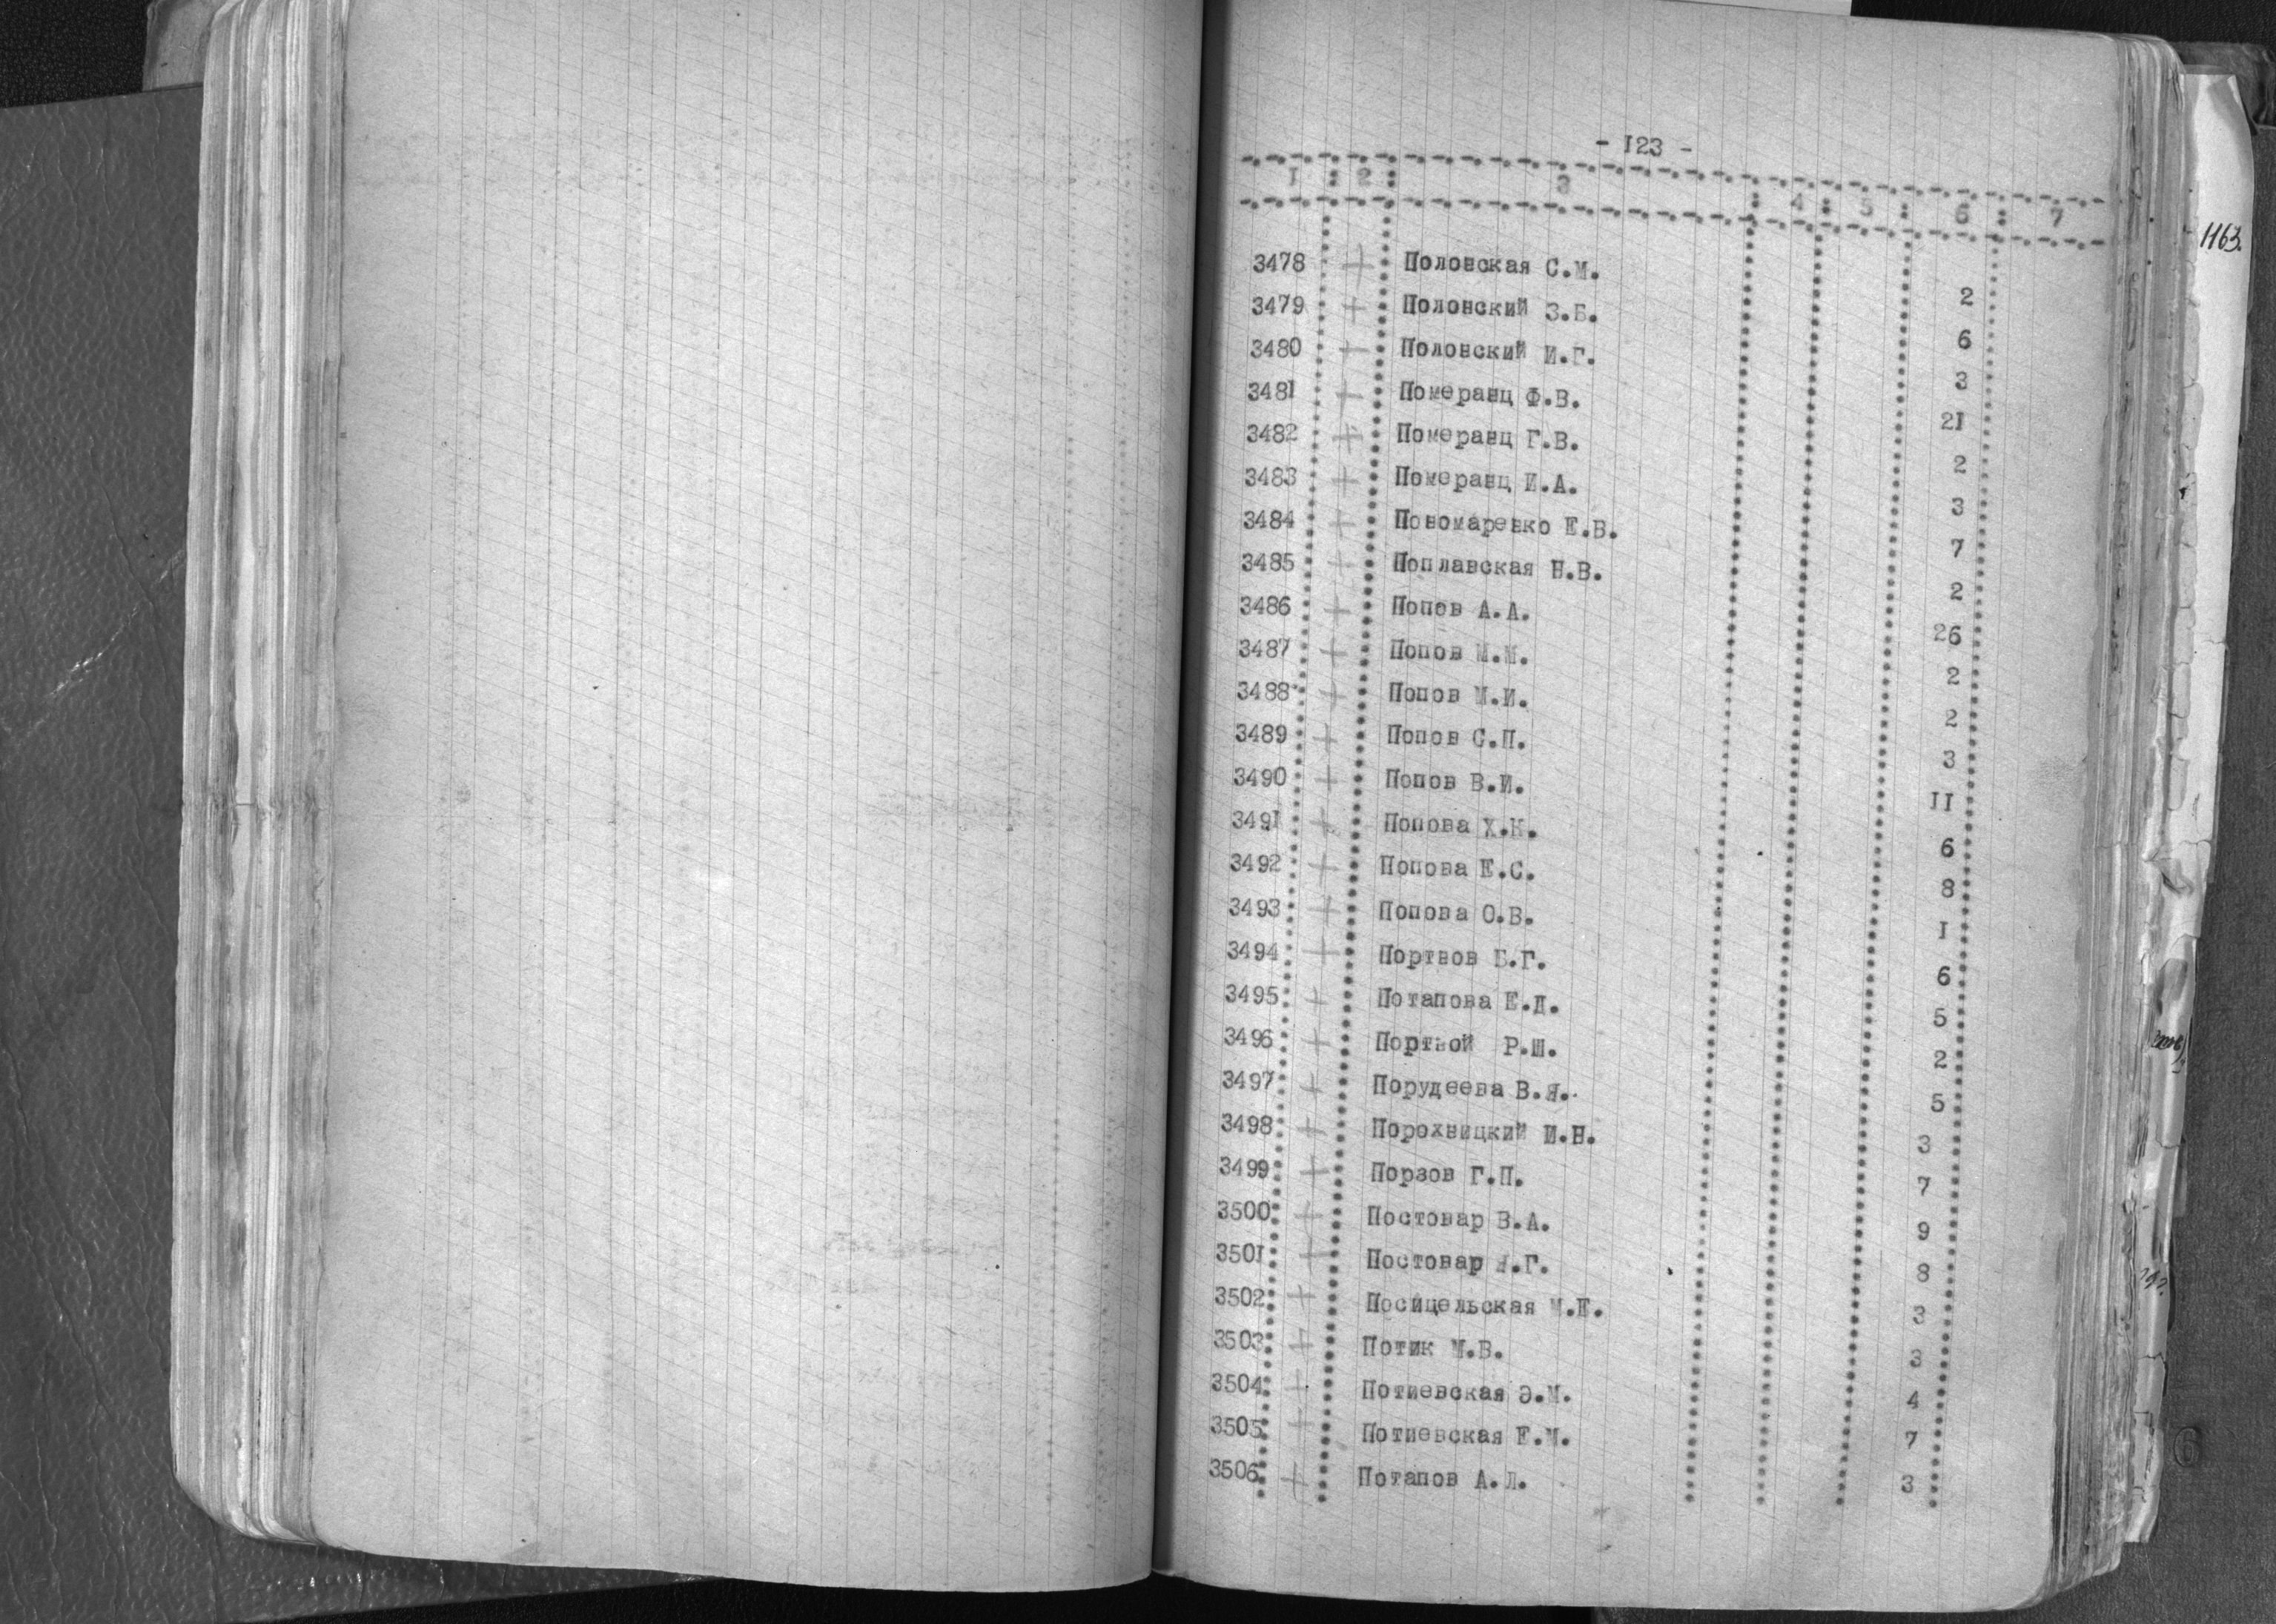 - 123 -
1 : 2 : 3 : 4 : 5 : 6 : 7
1163.
3478 + Половская С.М. 2
3479 + Половский З.Б. 6
3480 + Половский И.Г. 3
3481 + Померанц Ф.В. 21
3482 + Померанц Г.В. 2
3483 + Померанц И.А. 3
3484 + Пономаренко Е.В. 7
3485 + Поплавская Н.В. 2
3486 + Попов А.А. 26
3487 + Попов М.М. 2
3488 + Попов М.И. 2
3489 + Попов С.П. 3
3490 + Попов В.И. 11
3491 + Попова Х.К. 6
3492 + Попова Е.С. 8
3493 + Попова О.В. 1
3494 + Портнов Б.Г. 6
3495 + Потапова Е.Д. 5
3496 + Портной Р.Ш. 2
3497 + Порудеева В.Я. 5
3498 + Порохницкий И.Н. 3
3499 + Порзов Г.П. 7
3500 + Постовар З.А. 9
3501 + Постовар .Г. 8
3502 + Посицельская М.Е. 3
3503 + Потик М.В. 3
3504 + Потиевская Э.М. 4
3505 + Потиевская Е.М. 7
3506 + Потапов А.Л. 3